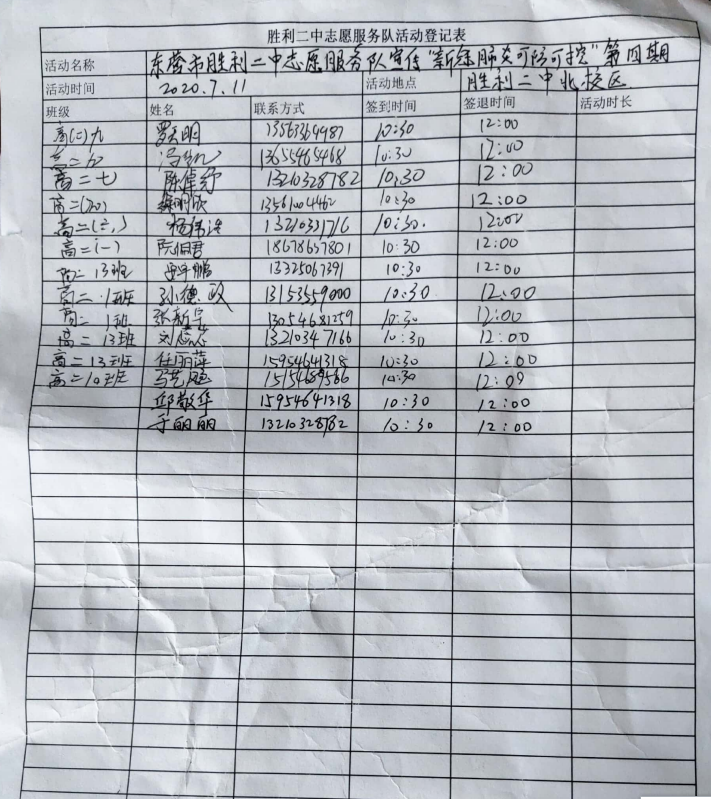 胜利二中志愿服务队活动登记表
活动名称 东营市胜利二中志愿服务队宣传"新冠肺炎可防可控"第四期
活动时间 2020.7.11 活动地点 胜利二中北校区
班级 姓名 联系方式 签到时间 签退时间 活动时长
高(二)九 13563369987 10:30 12:00
高二九 13655465468 10:30 12:00
高二七 陈倬纾 13210328782 10:30 12:00
高二(20) 13561004462 10:30 12:00
高二(二) 杨伟浩 13210331716 10:30. 12:00
高二(一) 阮佀君 18678657801 10:30 12:00
高二13班 13325067391 10:30 12:00
高二.1班 孙德政 13153559000 10:30 12:00
高二1班 张新宇 13054681259 10:30 12:00
高二13班 刘蕊芯 13210347166 10:30 12:00
高二13班 任丽萍 15954641318 10:30 12:00
高二10班 15154659566 10:30 12:09
邱敬华 15954641318 10:30 12:00
于丽丽 13210328782 10:30 12:00